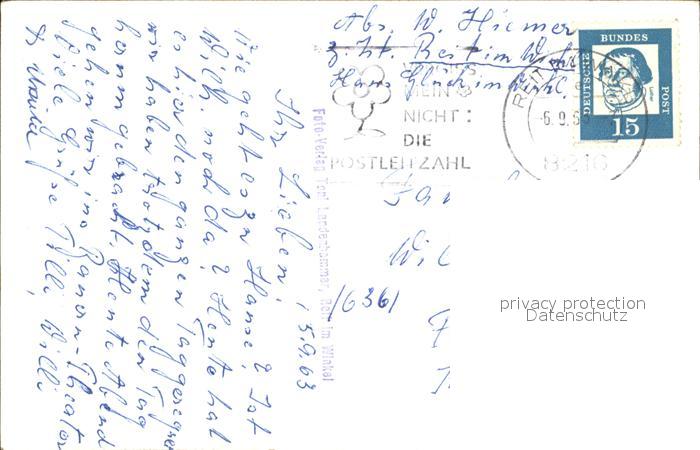 Abs. W. Hiemer
z. Zt. Reit im Winkl
Haus Glück im Winkl,
DEUTSCHE
BUNDES
POST
15
REIT IM WINKL
-6.9.63
8216
NICHT:
DIE
POSTLEITZAHL
Foto-Verlag Toni Landenhammer, Reit im Winkl
5.9.63
Ihr Lieben,
Wie geht es zu Hause? Ist
Willi noch da? Heute hat
es hier den ganzen Tag geregnet
wir haben trotzdem den Tag
herum gebracht. Heute Abend
gehen wir ins Bauern-Theater
Viele Grüße Willi,
& Ursula
Fam
Wil
/6361
F
privacy protection
Datenschutz